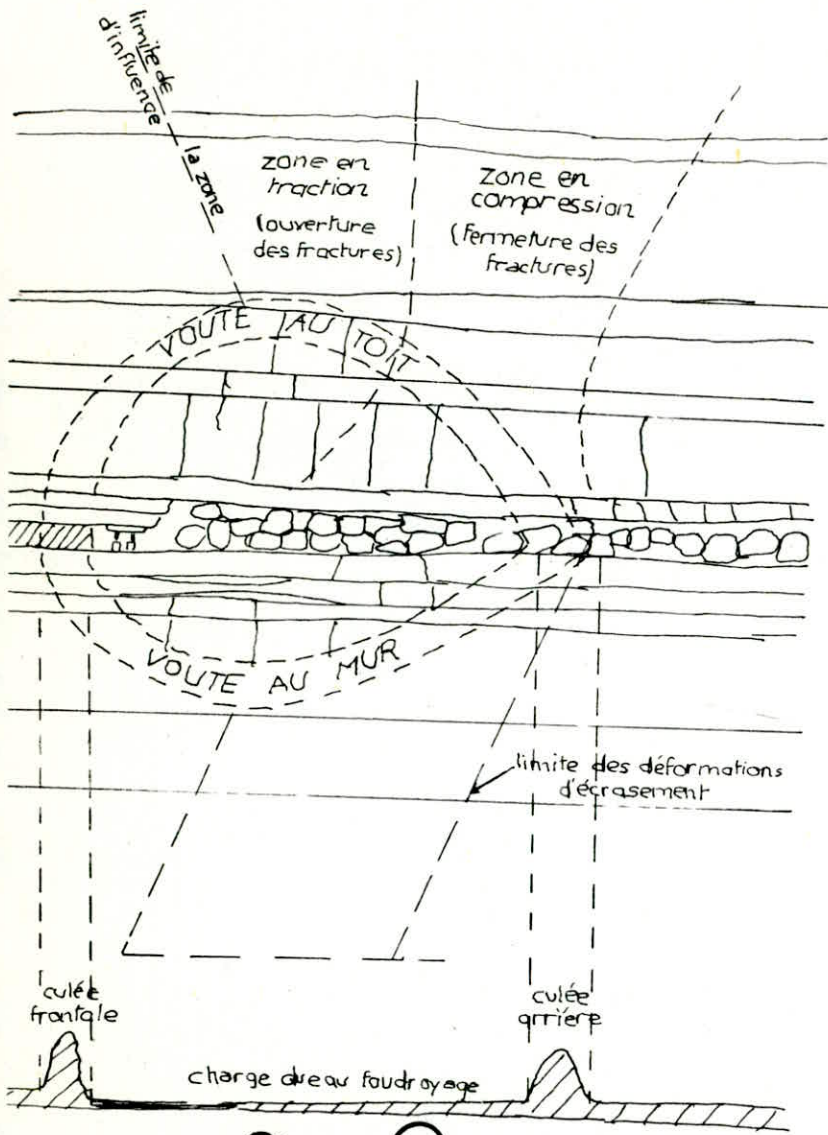 limite de
d'influence
la zone
zone en
traction
(ouverture
des fractures)
zone en
compression
(fermeture des
fractures)
VOUTE AU TOIT
VOUTE AU MUR
limite des déformations
d'écrasement
culée
frontale
culée
arrière
charge due au foudroyage